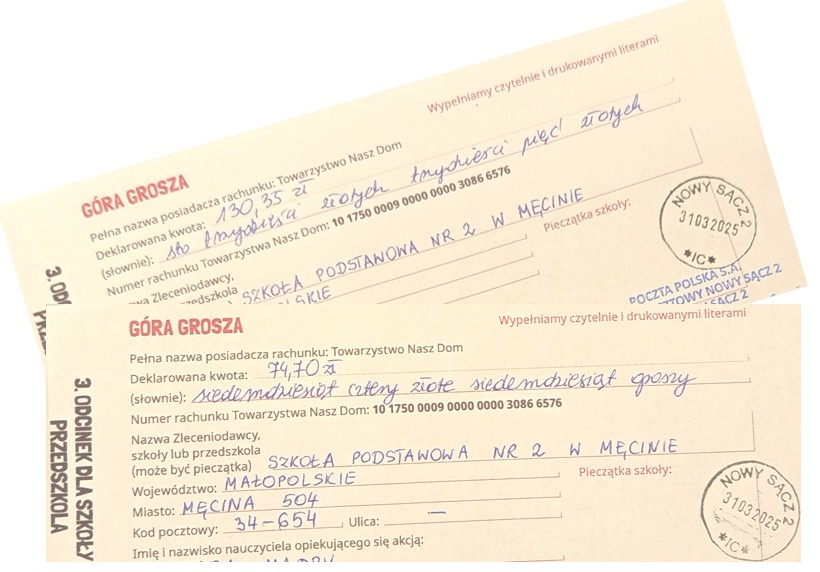 Wypełniamy czytelnie i drukowanymi literami
GÓRA GROSZA
Pełna nazwa posiadacza rachunku: Towarzystwo Nasz Dom
Deklarowana kwota: 130,35 zł
(słownie): sto trzydzieści złotych trzydzieści pięć złotych
Numer rachunku Towarzystwa Nasz Dom: 10 1750 0009 0000 0000 3086 6576
Zleceniodawcy,
przedszkola SZKOŁA PODSTANOWA NR 2 W MĘCINIE
Pieczątka szkoły:
NOWY SĄCZ 2
31032025
*IC*
POCZTA POLSKA S.A.
NOWY SĄCZ 2
GÓRA GROSZA
Wypełniamy czytelnie i drukowanymi literami
Pełna nazwa posiadacza rachunku: Towarzystwo Nasz Dom
Deklarowana kwota: 74,70 zł
(słownie): siedemdziesiąt cztery złote siedemdziesiąt groszy
Numer rachunku Towarzystwa Nasz Dom: 10 1750 0009 0000 0000 3086 6576
Nazwa Zleceniodawcy,
szkoły lub przedszkola
(może być pieczątka) SZKOŁA PODSTAWOWA NR 2 W MĘCINIE
Pieczątka szkoły:
Województwo: MAŁOPOLSKIE
Miasto: MĘCINA 504
Kod pocztowy: 34-654, Ulica: —
Imię i nazwisko nauczyciela opiekującego się akcją:
3. ODCINEK DLA SZKOŁY
PRZEDSZKOLA
NOWY SĄCZ 2
31032025
*IC*